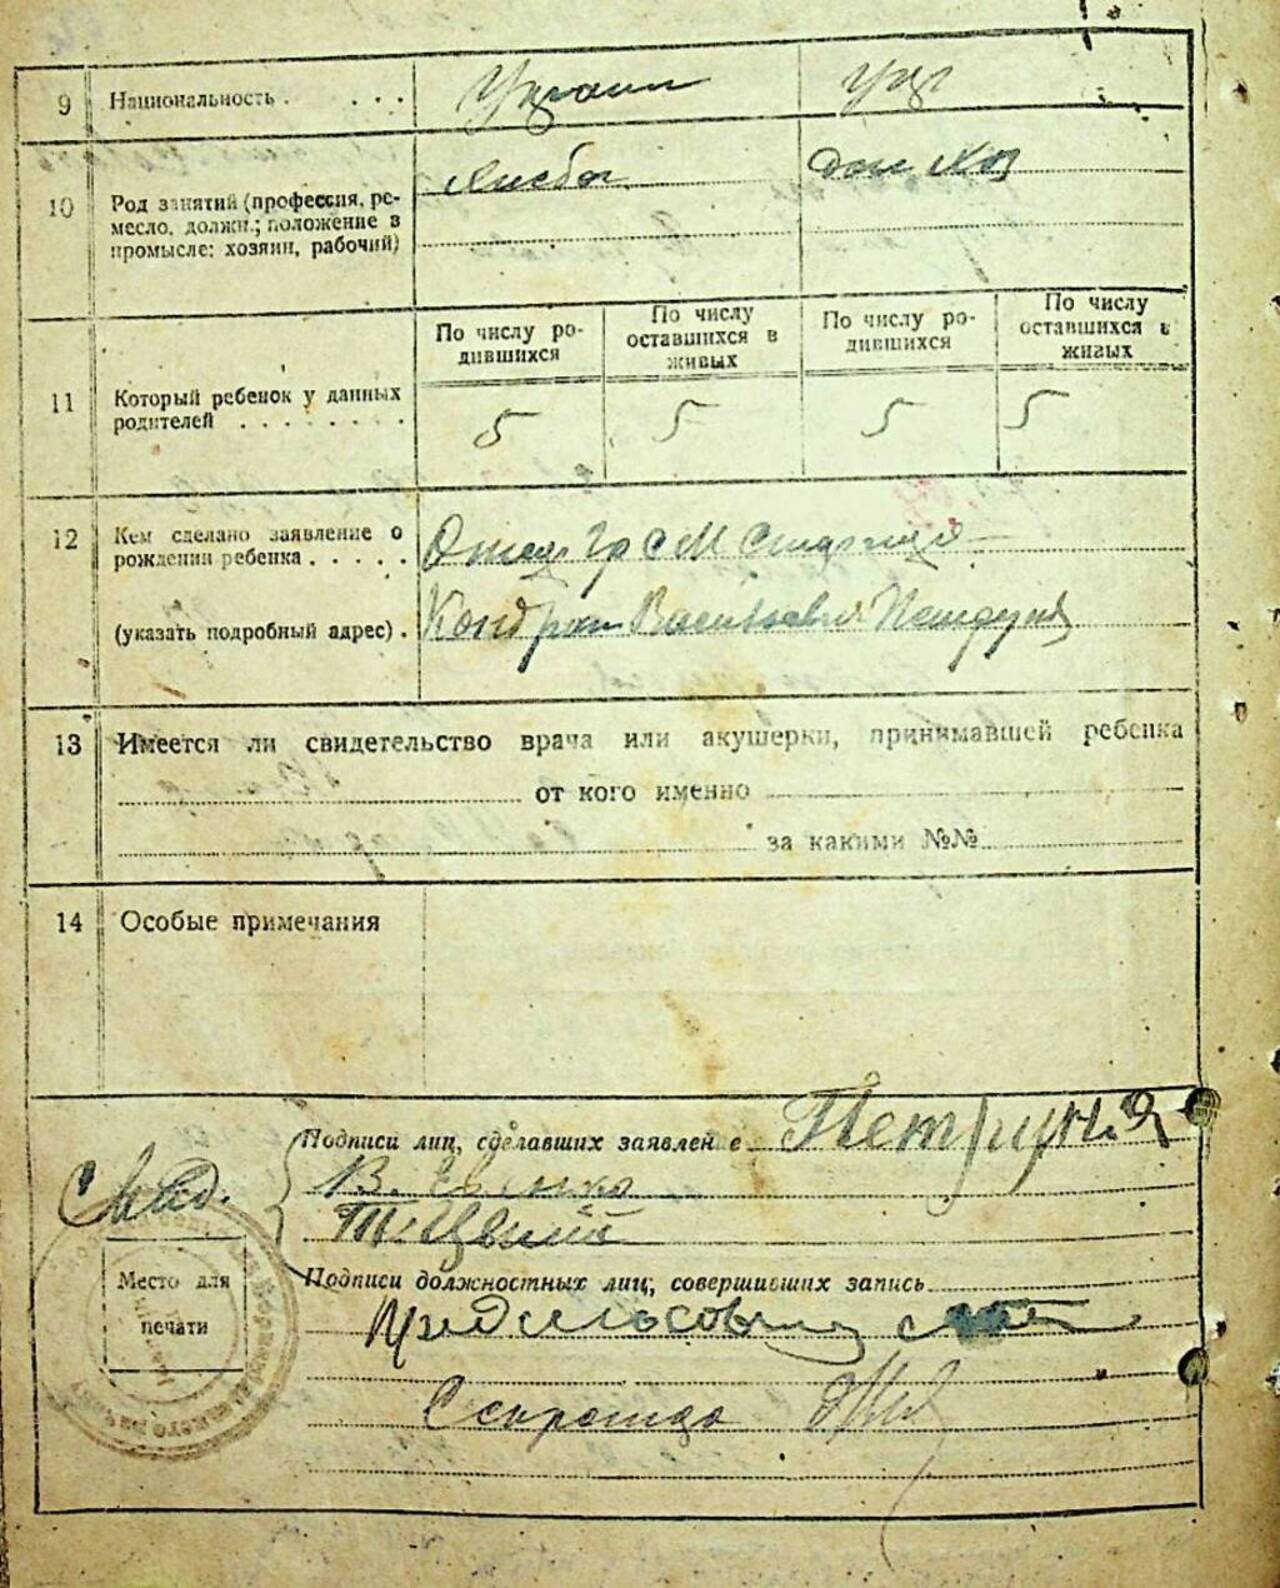 9 Национальность . . . . Украин Укр
10 Род занятий (профессия, ре-
месло, должн.; положение в
промысле: хозяин, рабочий)
Хлебор дом хоз
По числу ро-
дившихся
По числу
оставшихся в
живых
По числу ро-
дившихся
По числу
оставшихся в
живых
11 Который ребенок у данных
родителей . . . . . . . .
5 5 5 5
12 Кем сделано заявление о
рождении ребенка . . . . .
Отец Гр С М
(указать подробный адрес) .
Кондрат Васильевич Петруня
13 Имеется ли свидетельство врача или акушерки, принимавшей ребенка
от кого именно
за какими №№
14 Особые примечания
Подписи лиц, сделавших заявлен е Петруня
Свид.
В.
Т.
Место для
печати
Подписи должностных лиц, совершивших запись
Предсельсовета
Секретарь